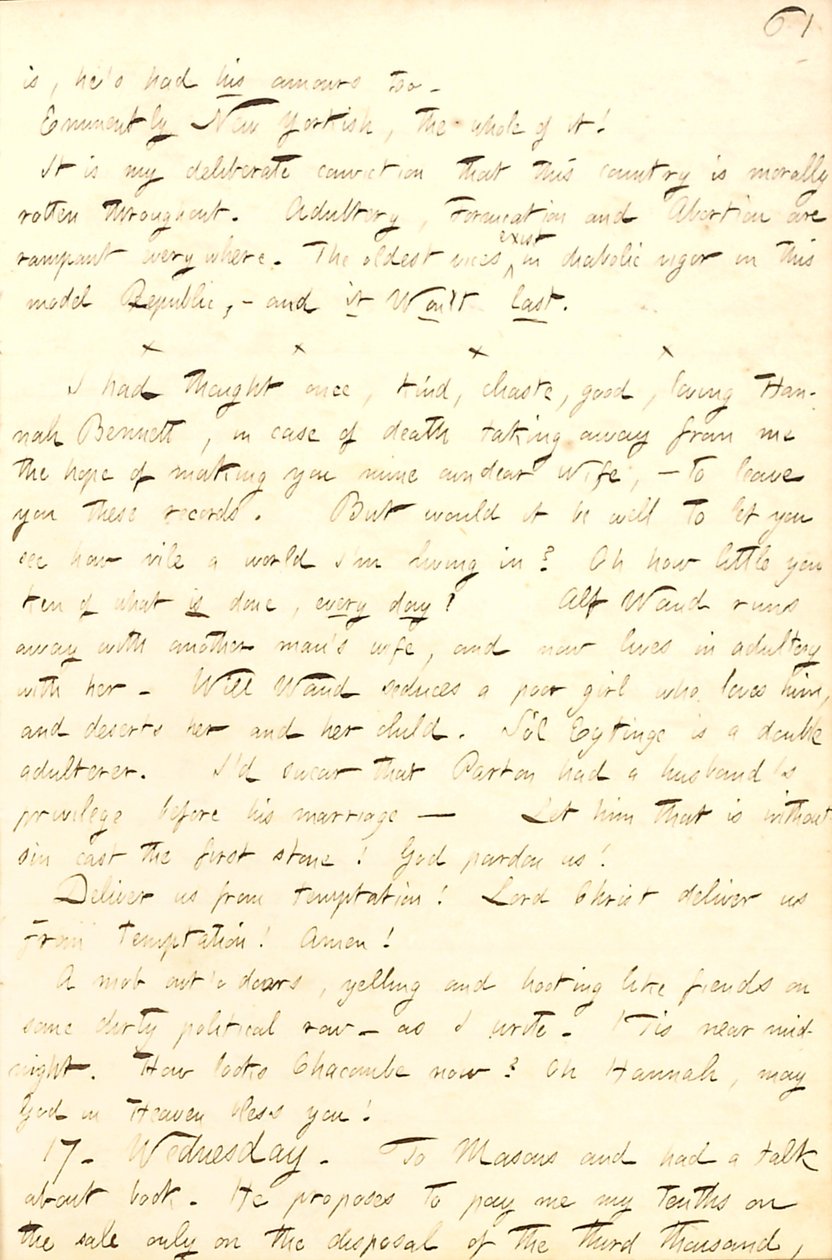 61
is, he's had his amours too -
Eminently New Yorkish, the whole of it!
It is my deliberate conviction that this country is morally
rotten throughout. Adultery, Fornication and Abortion are
exist
rampant every where. The oldest vices, in diabolic vigor in this
model Republic, - and it Won't last.
x x x x
I had thought once, kind, chaste, good, loving Han-
nah Bennett, in case of death taking away from me
the hope of making you mine own dear Wife, - to leave
you these records. But would it be well to let you
see how vile a world I'm living in? Oh how little you
ken of what is done, every day! Alf Waud runs
away with another man's wife, and now lives in adultery
with her - Will Waud seduces a poor girl who loves him,
and deserts her and her child. Sol Eytinge is a double
adulterer. I'd swear that Parton had a husband's
privilege before his marriage — Let him that is without
sin cast the first stone! God pardon us!
Deliver us from temptation! Lord Christ deliver us
from temptation! Amen!
A mob out 'o doors, yelling and hooting like fiends on
some dirty political row - as I write - 'Tis near mid-
night. How looks Chacombe now? Oh Hannah, may
God in Heaven bless you!
17 - Wednesday. To Masons and had a talk
about book. He proposes to pay me my tenths on
the sale only on the disposal of the third thousand,